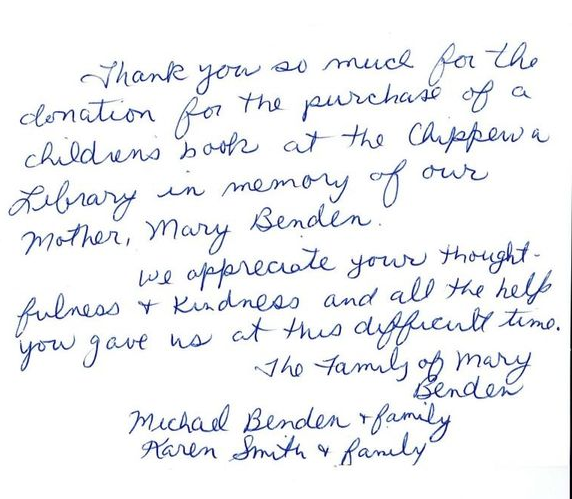 Thank you so much for the
donation for the purchase of a
childrens book at the Chippewa
Library in memory of our
Mother, Mary Benden.
We appreciate your thought-
fulness + kindness and all the help
you gave us at this difficult time.
The Family of Mary
Benden
Michael Benden + family
Karen Smith + family